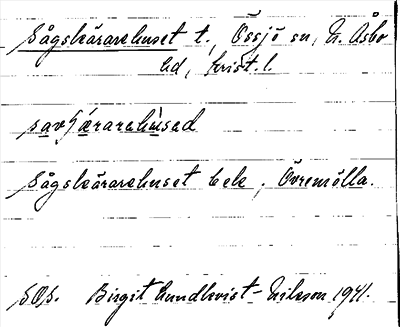 Sågskärarehuset t., Össjö sn, N. Åsbo
hd, Krist. l.
Sågskärarehuset bek., Övremölla.
SOS. Birgit Lundkvist-Nilsson 1941.